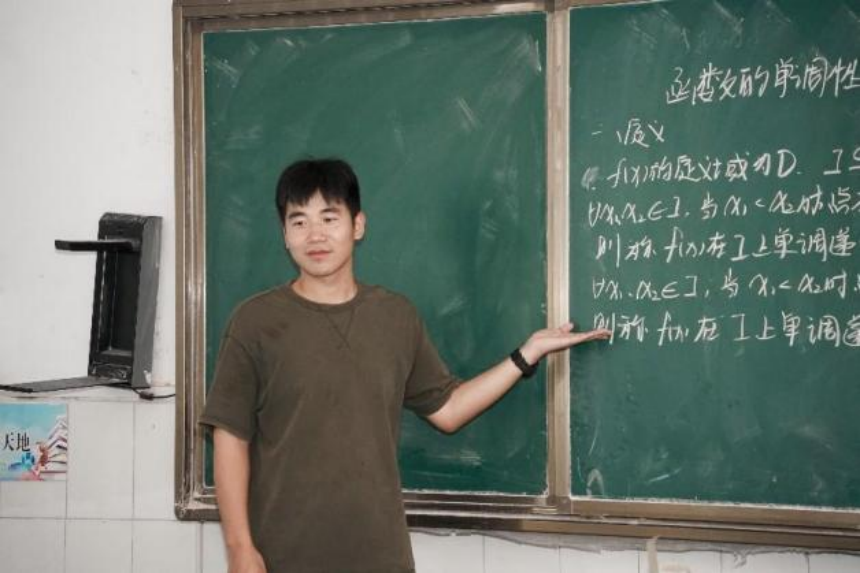 函数的单调性
一、定义
f(x)的定义域为D. I⊆
∀x₁,x₂∈I,当x₁<x₂时,
则称f(x)在I上单调递
∀x₁,x₂∈I,当x₁<x₂时,
则称f(x)在I上单调递
天地